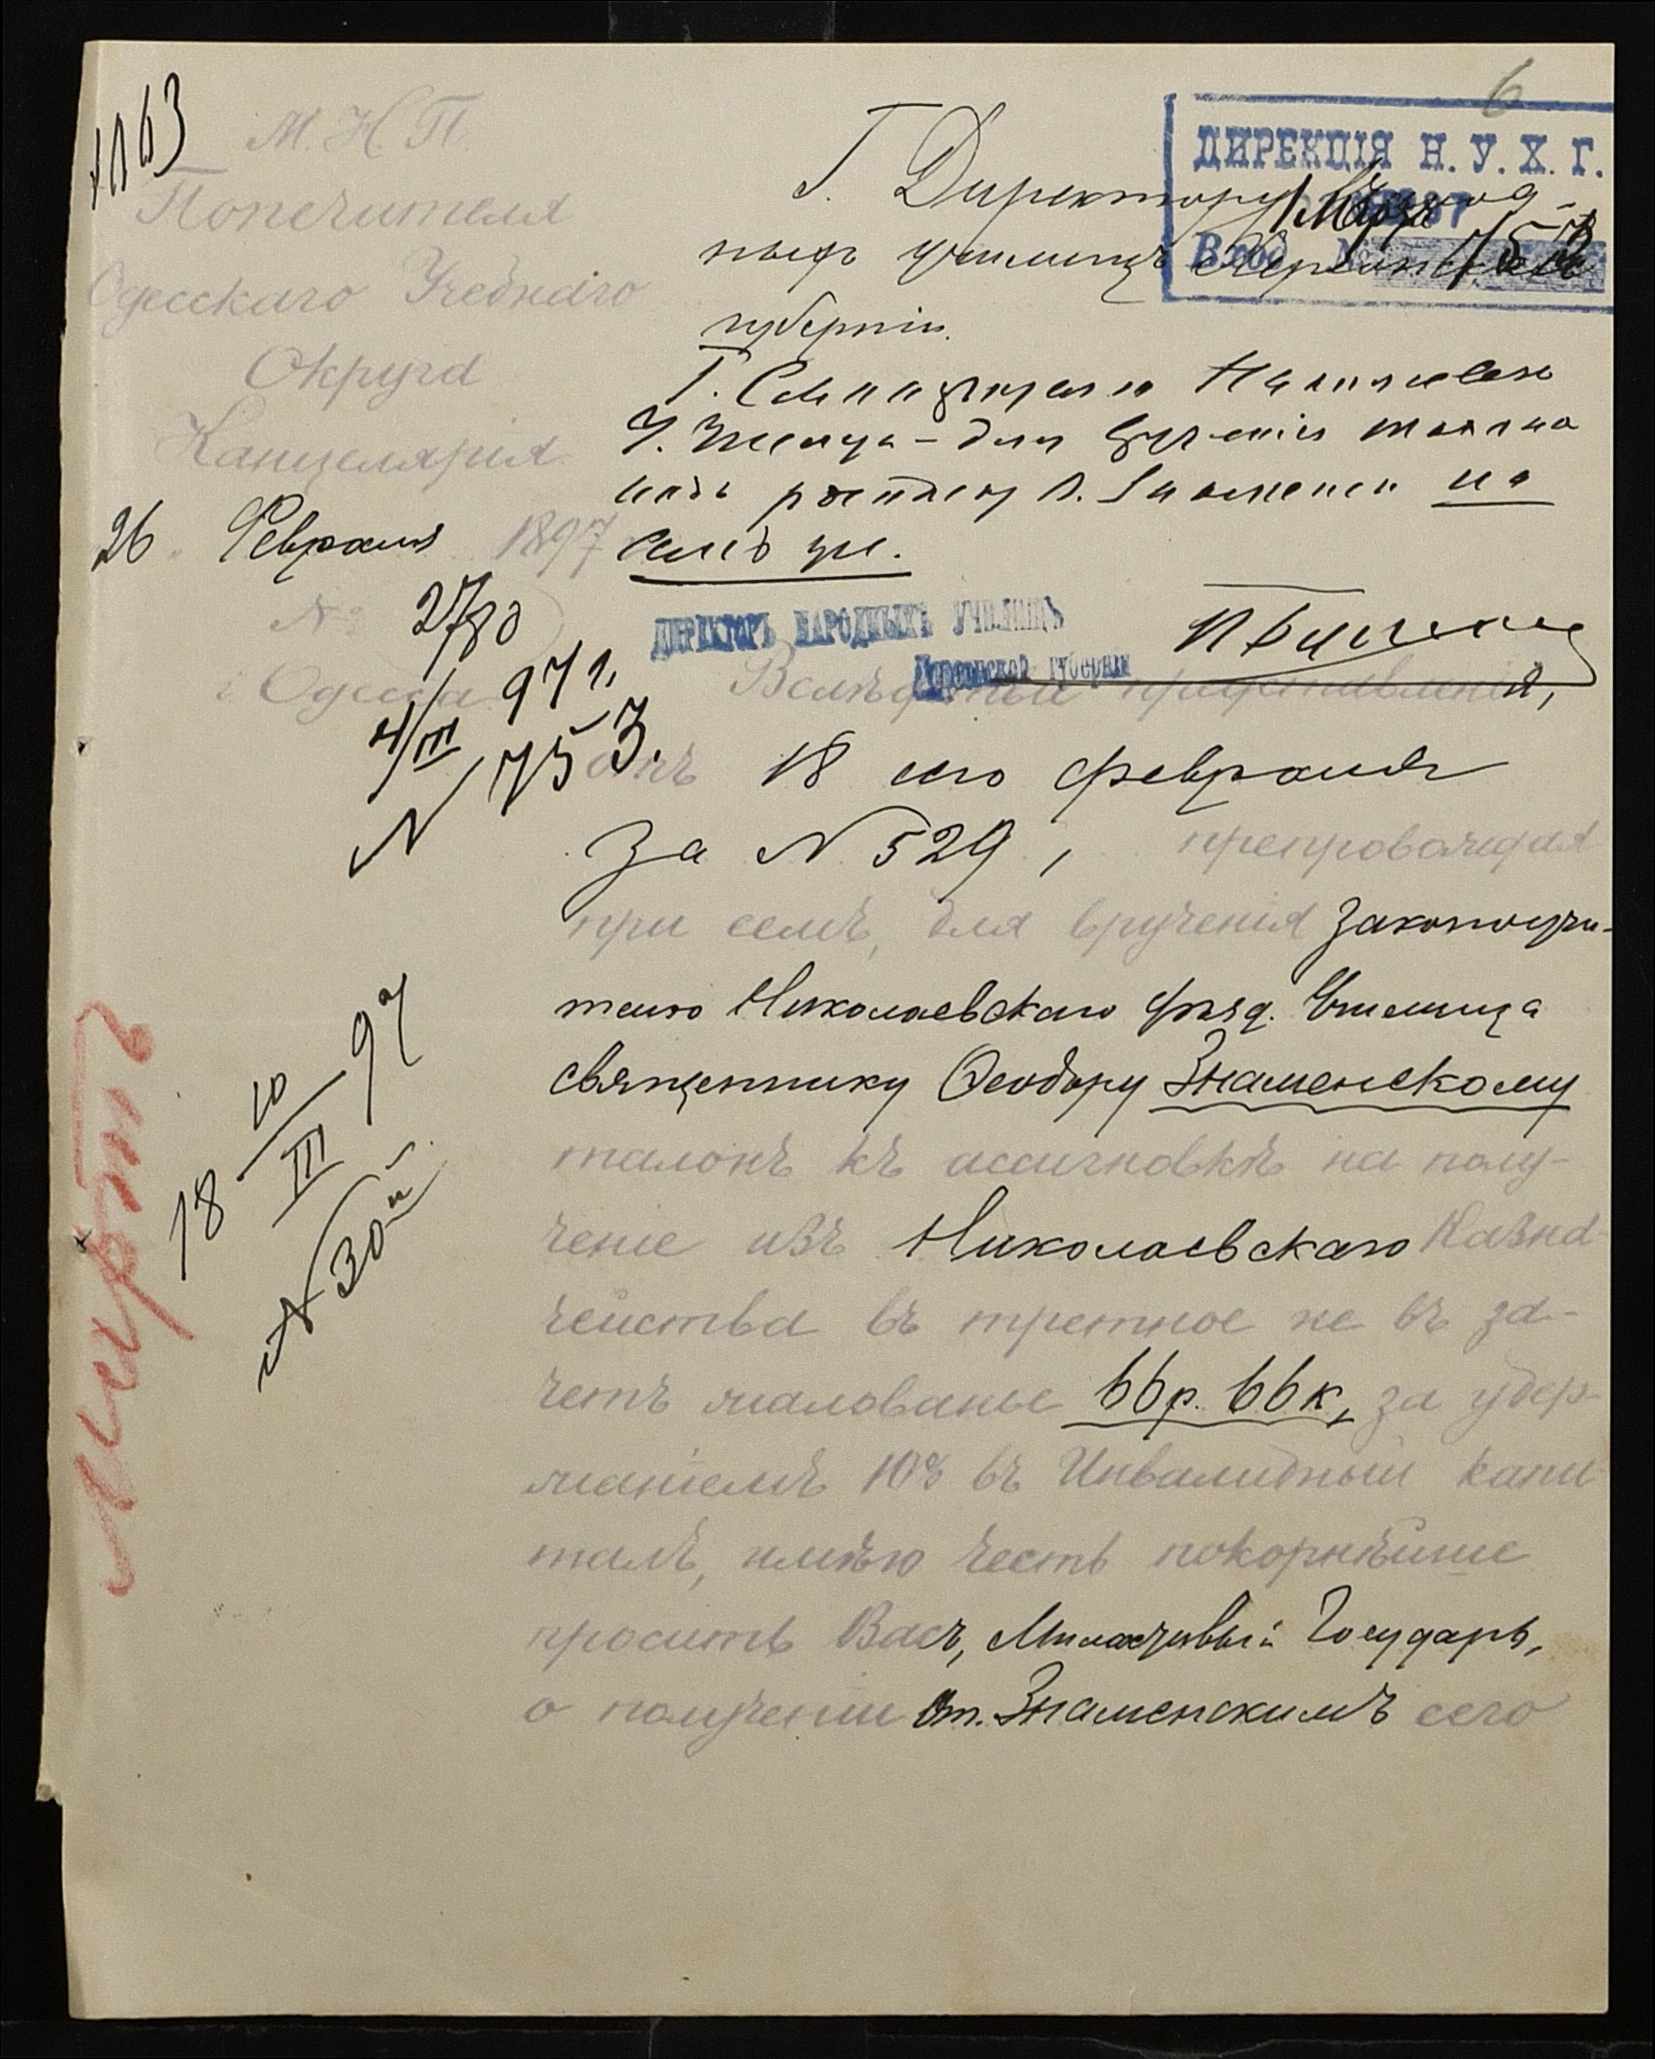 6
1163
М. Н. П.
Попечителя
Одесскаго Учебнаго
Округа
Канцелярія
26 Февраля 1897
№ 2780
г. Одесса
4/III 97 г.
N 753.
ДИРЕКЦІЯ Н. У. Х. Г.
Вход. № 753
Г. Директору Народ-
ныхъ училищъ Херсонской
губерніи.
Г.
У. Уезда - для врученія талона
подъ росписку на
семъ же.
ДИРЕКТОРЪ НАРОДНЫХЪ УЧИЛИЩЪ
Херсонской губерніи
Вслѣдствіе представленія,
отъ 18 сего февраля
за N 529, препровождая
при семъ, для врученія Законоучи-
телю Николаевскаго уѣзд. Училища
священнику Ѳеодору Знаменскому
талонъ къ ассигновкѣ на полу-
ченіе изъ Николаевскаго Казна-
чейства въ третное не въ за-
четъ жалованье 66 р. 66 к., за удер-
жаніемъ 10% въ Инвалидный капи
талъ, имѣю честь покорнѣйше
просить Васъ, Милостивый Государь,
о полученіи от. Знаменскимъ сего
18 10/III 97
N 30